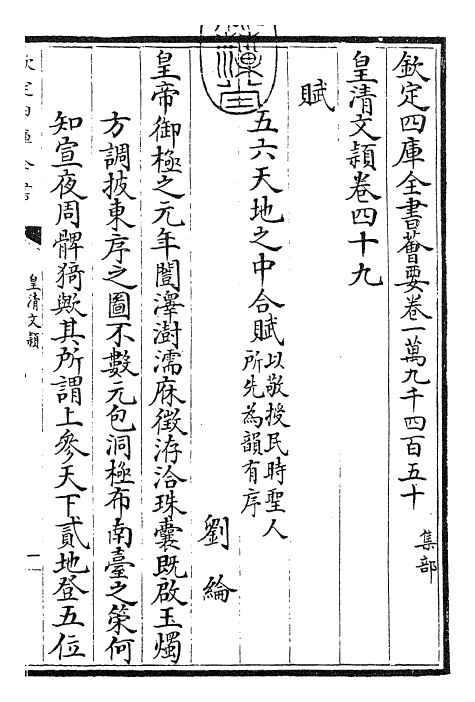 欽定四庫全書薈要卷一萬九千四百五十 集部
皇清文穎卷四十九
賦
五六天地之中合賦 以敬授民時聖人所先為韻有序
劉綸
皇帝御極之元年闓澤澍濡庥徵洊洽珠囊既啟玉燭
方調披東序之圖不數元包洞極布南臺之策何
知宣夜周髀猗歟其所謂上參天下貳地登五位
皇清文穎
一